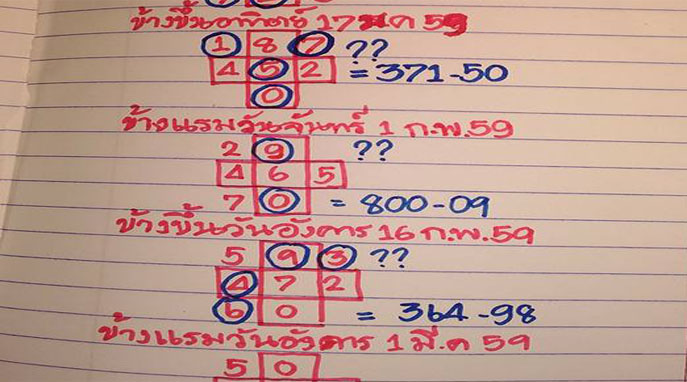 ข้างขึ้นอาทิตย์ 17 ม.ค 59
1 8 7 ??
4 5 2 = 371-50
0
ข้างแรมวันจันทร์ 1 ก.พ.59
2 9 ??
4 6 5
7 0 = 800-09
ข้างขึ้นวันอังคาร 16 ก.พ.59
5 9 3 ??
4 7 2
6 0 = 364-98
ข้างแรมวันอังคาร 1 มี.ค 59
5 0